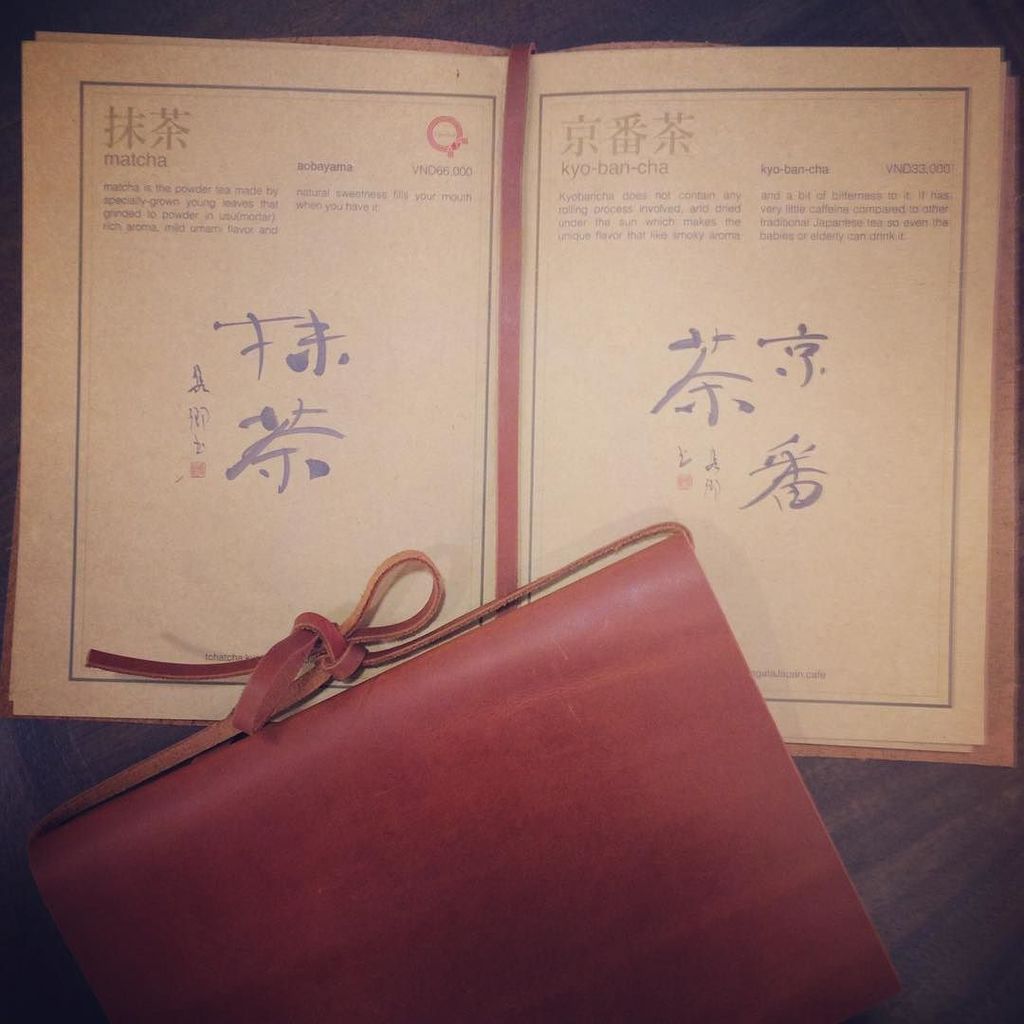 抹茶
matcha
aobayama VND66,000
matcha is the powder tea made by
specially-grown young leaves that
grinded to powder in usu(mortar).
rich aroma, mild umami flavor and
natural sweetness fills your mouth
when you have it.
抹
茶
京番茶
kyo-ban-cha
kyo-ban-cha VND33,000
Kyobancha does not contain any
rolling process involved, and dried
under the sun which makes the
unique flavor that like smoky aroma
and a bit of bitterness to it. It has
very little caffeine compared to other
traditional Japanese tea so even the
babies or elderly can drink it.
京
番
茶